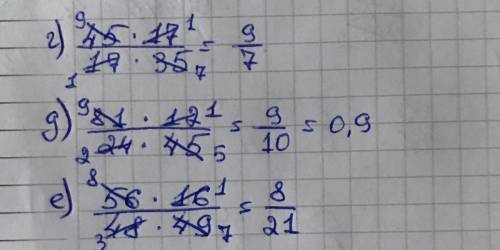 г) (⁹4̶5̶ · 1̶7̶¹)/(₁1̶7̶ · 3̶5̶₇) = 9/7
д) (⁹8̶1̶ · 1̶2̶¹)/(₂2̶4̶ · 4̶5̶₅) = 9/10 = 0,9
е) (⁸5̶6̶ · 1̶6̶¹)/(₃4̶8̶ · 4̶9̶₇) = 8/21